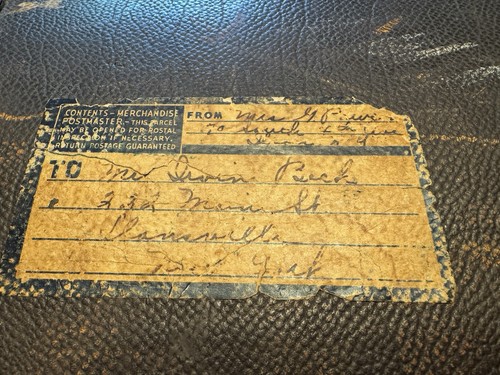 CONTENTS - MERCHANDISE
POSTMASTER - THIS PARCEL
MAY BE OPENED FOR POSTAL
INSPECTION IF NECESSARY.
RETURN POSTAGE GUARANTEED
FROM Mrs G.
South
N Y
TO Mr Irvin Beck
Main St
Dansville
York